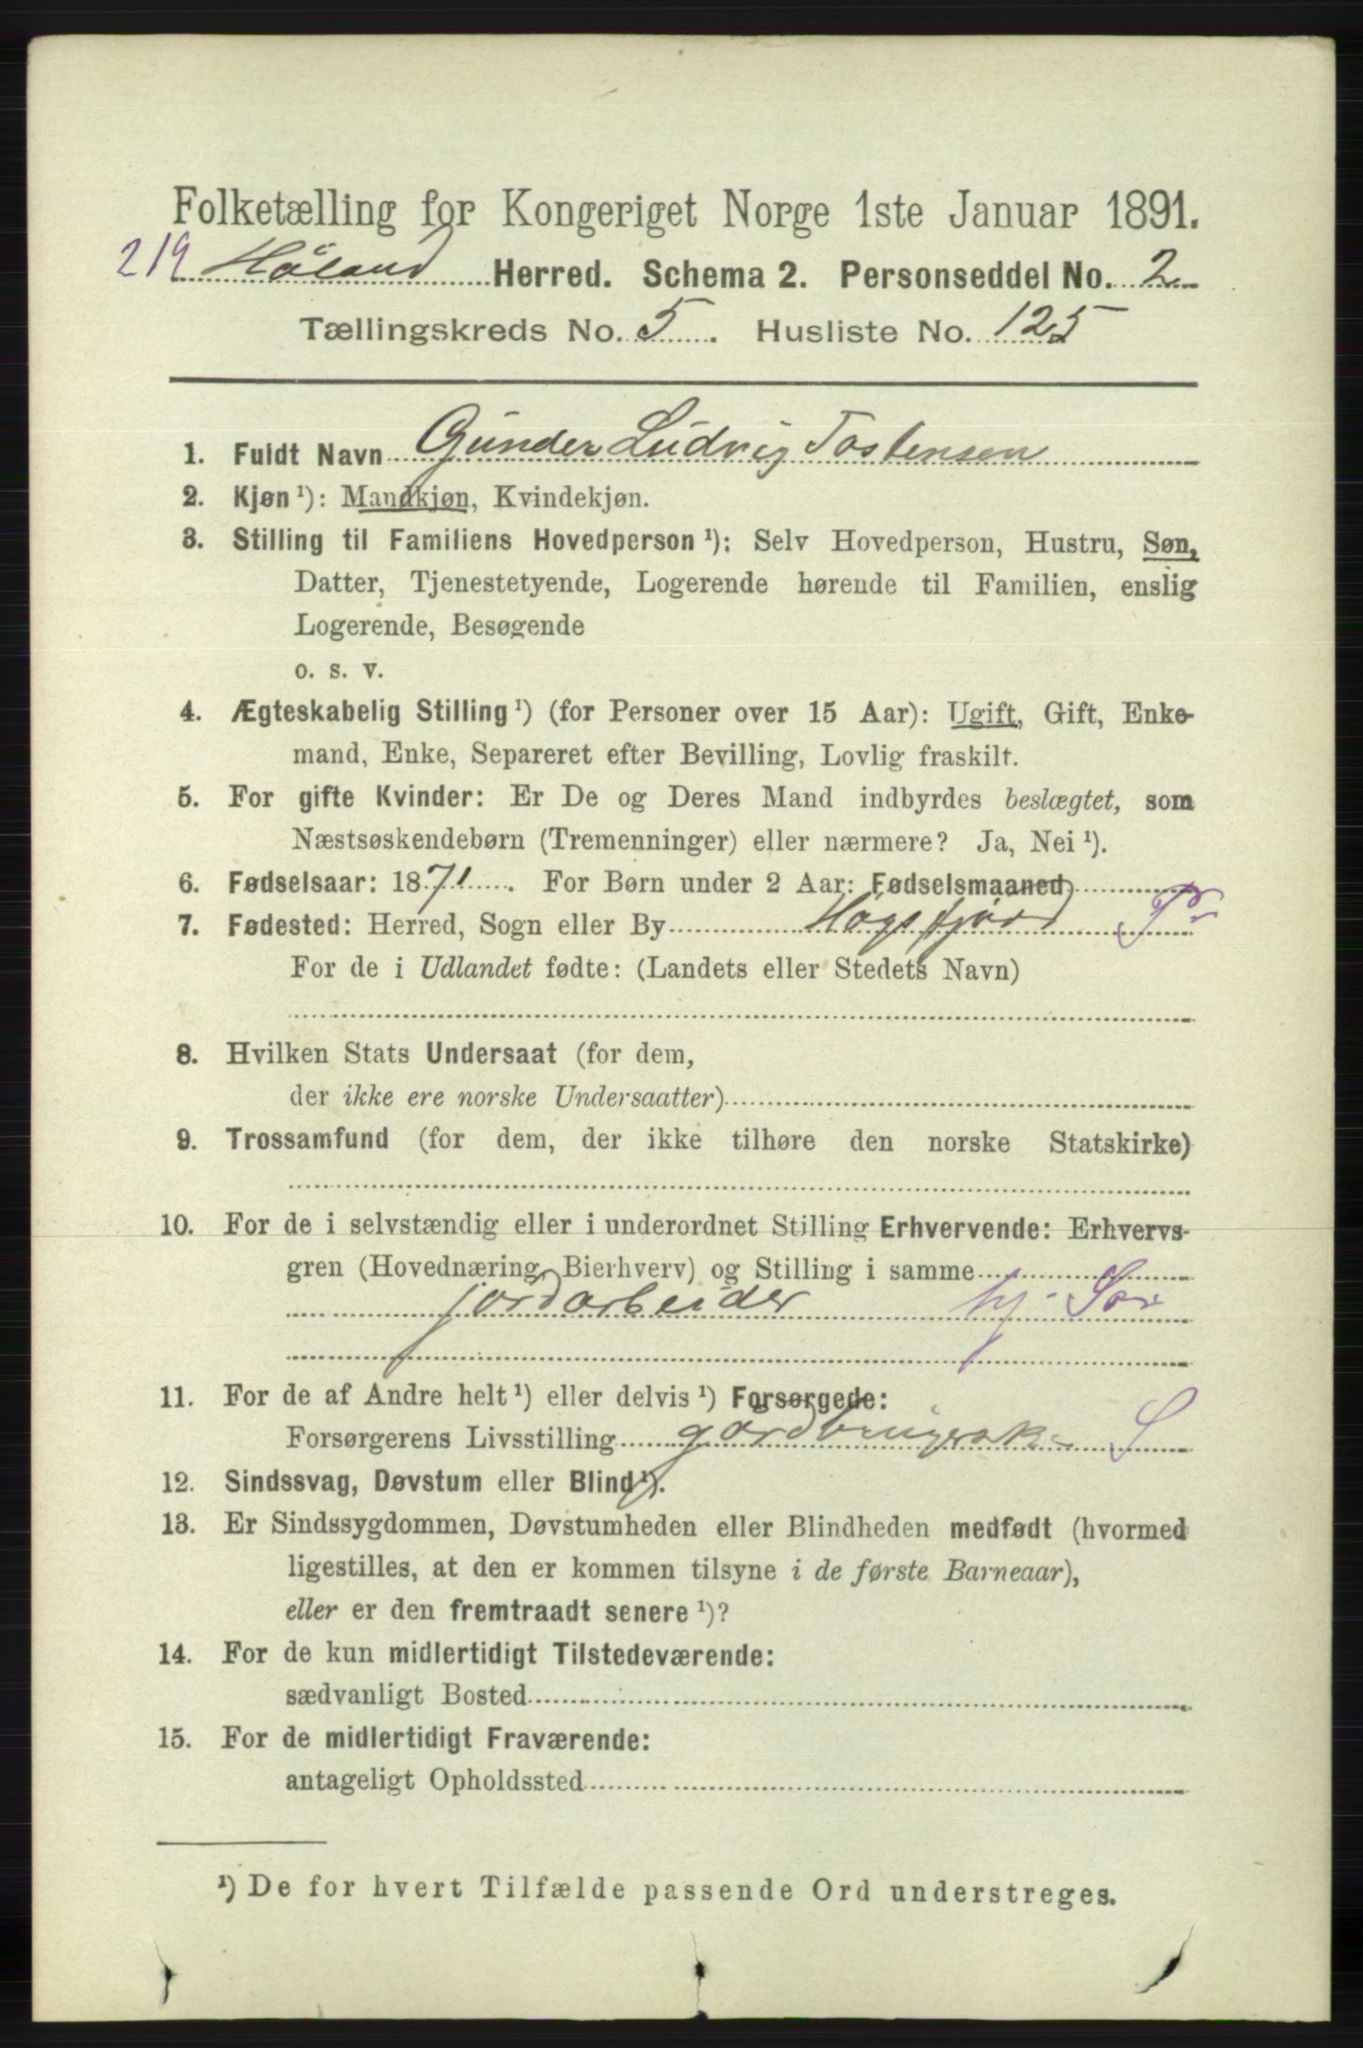 Folketælling for Kongeriget Norge 1ste Januar 1891.
219 Høland Herred. Schema 2. Personseddel No. 2
Tællingskreds No. 5. Husliste No. 125
1. Fuldt Navn Gunder Ludvig Tostensen
2. Kjøn ¹): Mandkjøn, Kvindekjøn.
3. Stilling til Familiens Hovedperson ¹): Selv Hovedperson, Hustru, Søn,
Datter, Tjenestetyende, Logerende hørende til Familien, enslig
Logerende, Besøgende
o. s. v.
4. Ægteskabelig Stilling ¹) (for Personer over 15 Aar): Ugift, Gift, Enke-
mand, Enke, Separeret efter Bevilling, Lovlig fraskilt.
5. For gifte Kvinder: Er De og Deres Mand indbyrdes beslægtet, som
Næstsøskendebørn (Tremenninger) eller nærmere? Ja, Nei ¹).
6. Fødselsaar: 1871. For Børn under 2 Aar: Fødselsmaaned
7. Fødested: Herred, Sogn eller By Høgsfjord
For de i Udlandet fødte: (Landets eller Stedets Navn)
8. Hvilken Stats Undersaat (for dem,
der ikke ere norske Undersaatter)
9. Trossamfund (for dem, der ikke tilhøre den norske Statskirke)
10. For de i selvstændig eller i underordnet Stilling Erhvervende: Erhvervs-
gren (Hovednæring, Bierhverv) og Stilling i samme
jordarbeider hj. Søn
11. For de af Andre helt ¹) eller delvis ¹) Forsørgede:
Forsørgerens Livsstilling S
12. Sindssvag, Døvstum eller Blind ¹).
13. Er Sindssygdommen, Døvstumheden eller Blindheden medfødt (hvormed
ligestilles, at den er kommen tilsyne i de første Barneaar),
eller er den fremtraadt senere ¹)?
14. For de kun midlertidigt Tilstedeværende:
sædvanligt Bosted
15. For de midlertidigt Fraværende:
antageligt Opholdssted
¹) De for hvert Tilfælde passende Ord understreges.